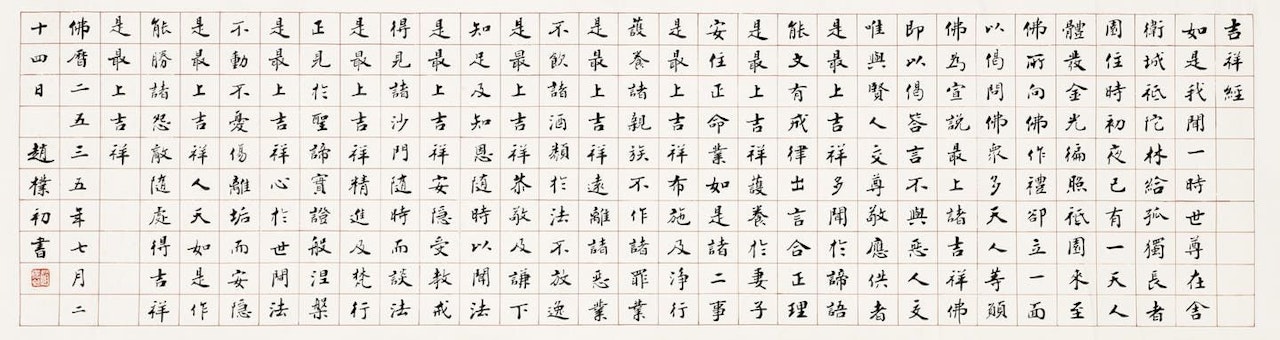 吉祥經
如是我聞一時世尊在舍
衛城祇陀林給孤獨長者
園住時初夜已有一天人
體發金光徧照祇園來至
佛所向佛作禮卻立一面
以偈問佛衆多天人等願
佛為宣說最上諸吉祥佛
即以偈答言不與惡人交
唯與賢人交尊敬應供者
是最上吉祥多聞於諦語
能文有戒律出言合正理
是最上吉祥護養於妻子
安住正命業如是諸二事
是最上吉祥布施及淨行
護養諸親族不作諸罪業
是最上吉祥遠離諸惡業
不飲諸酒類於法不放逸
是最上吉祥恭敬及謙下
知足及知恩隨時以聞法
是最上吉祥安隱受教戒
得見諸沙門隨時而談法
是最上吉祥精進及梵行
正見於聖諦實證般涅槃
是最上吉祥心於世間法
不動不憂傷離垢而安隱
是最上吉祥人天如是作
能勝諸怨敵隨處得吉祥
是最上吉祥
佛曆二五三五年七月二
十四日 趙樸初書